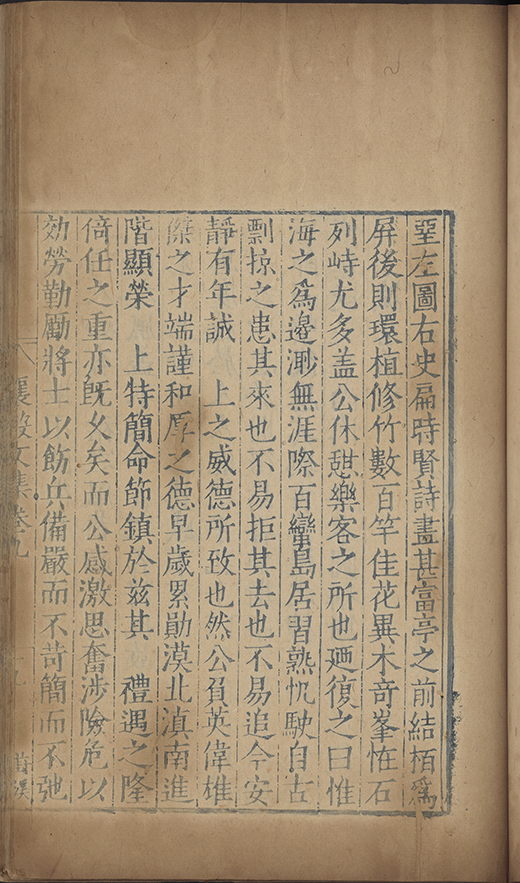 堊左圖右史扁時賢詩畫甚富亭之前結栢爲
屏後則環植修竹數百竿佳花異木竒峯恠石
列峙尤多盖公休憇樂客之所也廼復之曰惟
海之爲邊渺無涯際百蠻島居習熟忛駛自古
剽掠之患其來也不易拒其去也不易追今安
靜有年誠 上之威德所致也然公負英偉雄
傑之才端謹和厚之德早歲累勛漠北滇南進
階顯榮 上特簡命節鎮於兹其 禮遇之隆
倍任之重亦旣久矣而公感激思奮涉險危以
効勞勤勵將士以飭兵備嚴而不苛簡而不弛
襄毅文集卷九